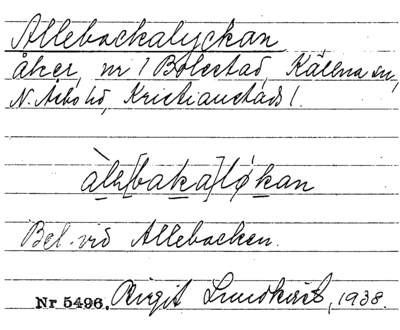 Allebackalyckan
åker, nr 1 Bolestad, Källna sn,
N. Åsbo hd, Kristianstads l.
àle[baka]løkan
Bel. vid Allebacken.
Nr 5496. Birgit Lundkvist, 1938.